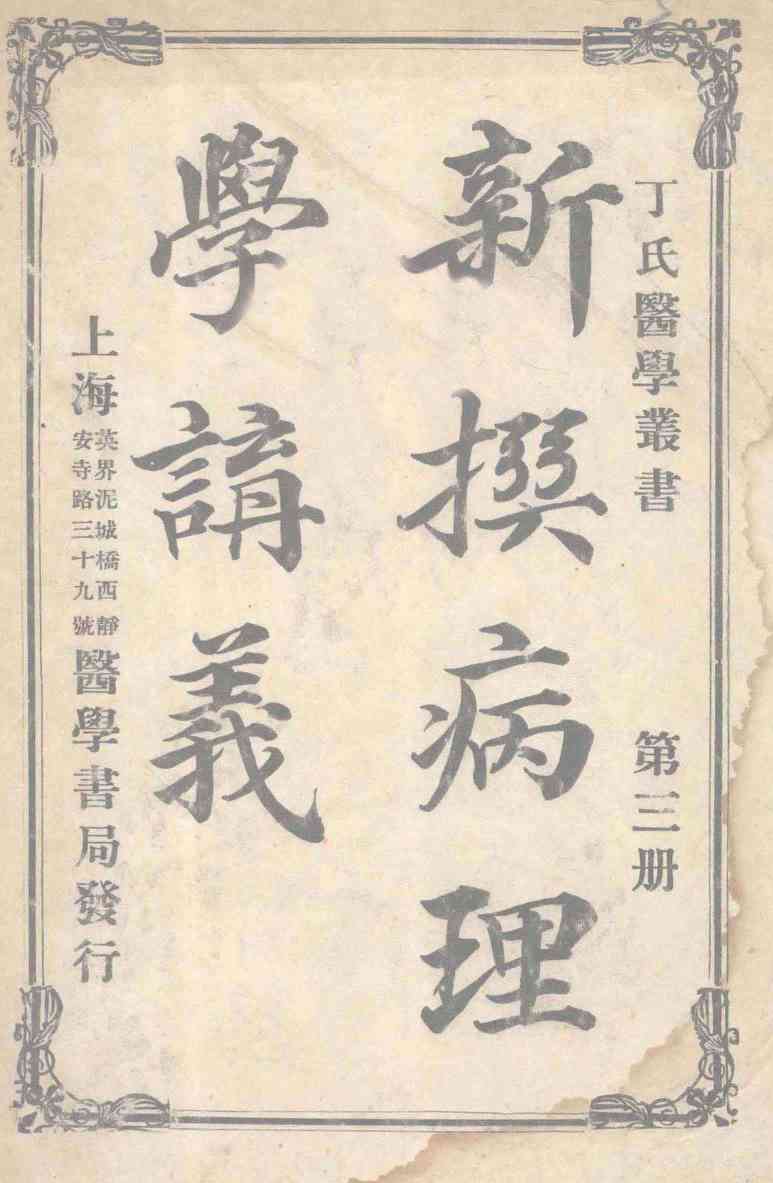 丁氏醫學叢書 第三册
新撰病理
學講義
上海英界泥城橋西靜安寺路三十九號醫學書局發行